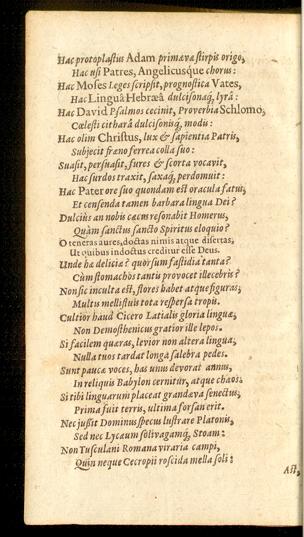 Hac protoplastus Adam primæva stirpis origo,
Hac usi Patres, Angelicusque chorus:
Hac Moses leges scripsit, prognostica Vates,
Hac Linguâ Hebræâ dulcisonaq́, lyrâ:
Hac David Psalmos cecinit, Proverbia Schlomo,
Cœlesti citharâ dulcisonisq́, modis:
Hac olim Christus, lux & sapientia Patris,
Subjecit fræno ferrea colla suo:
Suasit, persuasit, fures & scorta vocavit,
Hac surdos traxit, saxaq́, perdomuit:
Hac Pater ore suo quondam est oracula fatus,
Et censenda tamen barbara lingua Dei?
Dulcius an nobis cæcus resonabit Homerus,
Quàm sanctus sancto Spiritus eloquio?
O teneras aures, doctas nimis atque disertas,
Ut quibus indoctus creditur esse Deus.
Unde hæ deliciæ? quorsum fastidia tanta?
Cùm stomachos tantis provocet illecebris?
Non sic inculta est, flores habet atque figuras;
Multis mellistuis tota respersa tropis.
Cultior haud Cicero Latialis gloria linguæ,
Non Demosthenicus gratior ille lepos.
Si facilem quæras, levior non altera lingua;
Nulla tuos tardat longa salebra pedes.
Sunt paucæ voces, has unus devorat annus,
In reliquis Babylon cernitur, atque chaos.
Si tibi linguarum placeat grandæva senectus,
Prima fuit terris, ultima forsan erit.
Nec jussit Dominus specus lustrare Platonis,
Sed nec Lycæum solivagamq́, Stoam:
Non Tusculani Romana viraria campi,
Quin neque Cecropii roscida mella soli:
Ast,